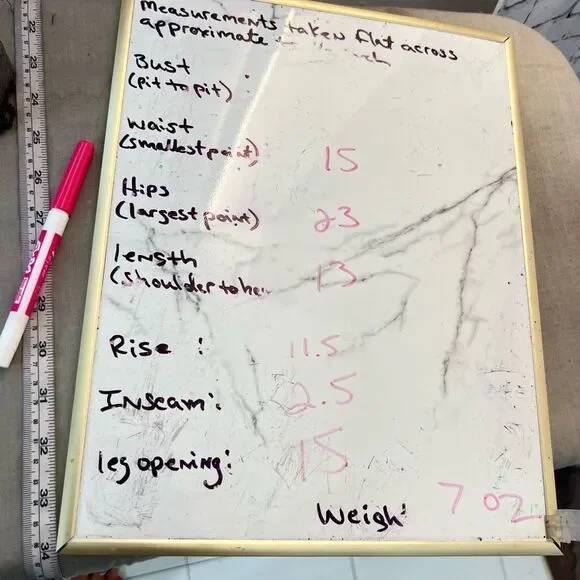 Measurements taken flat across
approximate
Bust
(pit to pit)
Waist
(smallest point) 15
Hips
(largest point) 23
length
(shoulder to 13
Rise : 11.5
Inseam: 2.5
leg opening: 15
Weigh: 7 oz
22
23
24
25
26
27
29
30
31
32
33
34